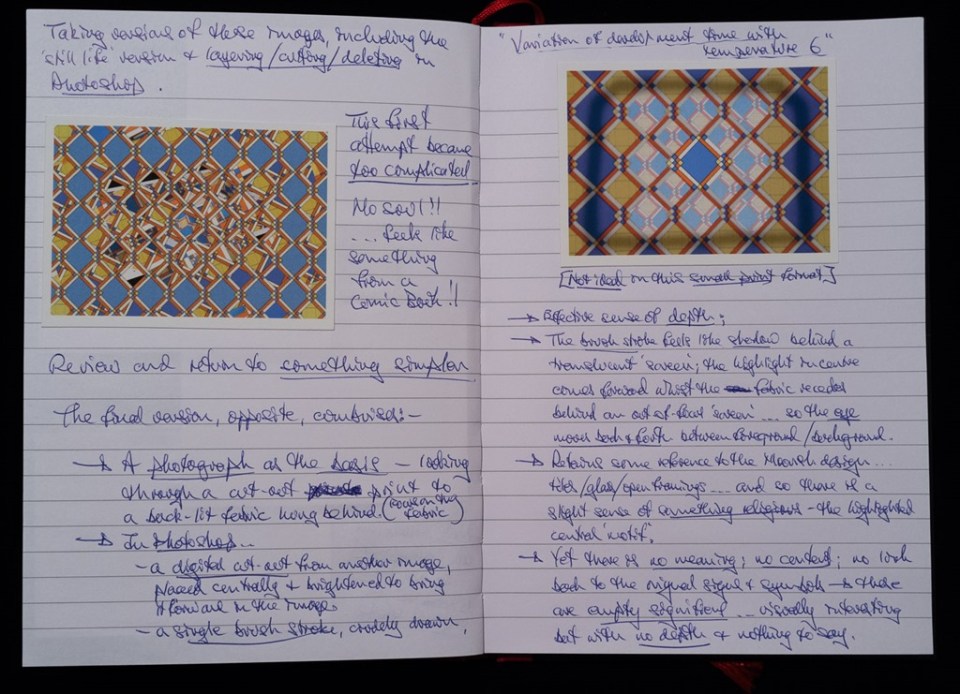 Taking versions of these images, including the
'still life' version & layering/cutting/deleting in
Photoshop.
The first
attempt became
too complicated
No soul!!
... feels like
something
from a
Comic Book!!
Review and return to something simpler
The final version, opposite, combines:-
→ A photograph as the basis – looking
through a cut-out print to
a back-lit fabric hung behind. (focus on the fabric)
→ In Photoshop...
- a digital cut-out from another image,
placed centrally & brightened to bring
it forward in the image.
- a single brush stroke, crudely drawn,
"Variation of development time with
temperature 6"
[Not ideal on this small print format]
→ Effective sense of depth;
→ The brush stroke feels like shadow behind a
translucent 'screen'; the highlight in centre
comes forward whilst the fabric recedes
behind an out of focus 'screen' ... so the eye
moves back & forth between foreground/background.
→ Retains some reference to the Moorish design ...
tiles/glass/open framings ... and so there is a
slight sense of something religious – the highlighted
central 'motif'.
→ Yet there is no meaning; no content; no link
back to the original signs & symbols → these
are empty signifiers ... visually interesting
but with no depth & nothing to say.